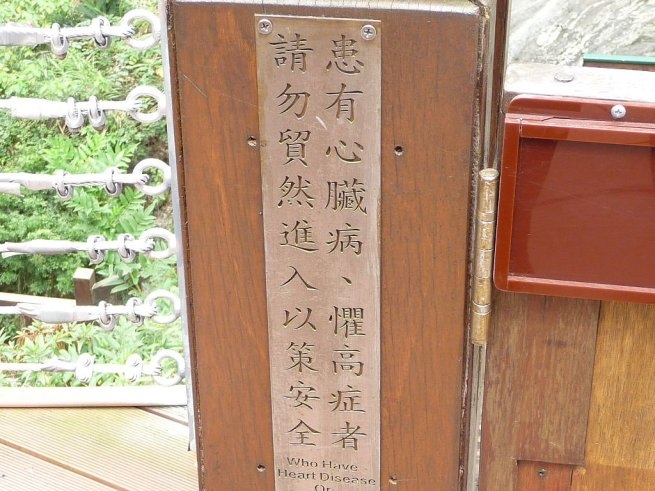 患有心臟病、懼高症者
請勿貿然進入以策安全
Who Have
Heart Disease
Or